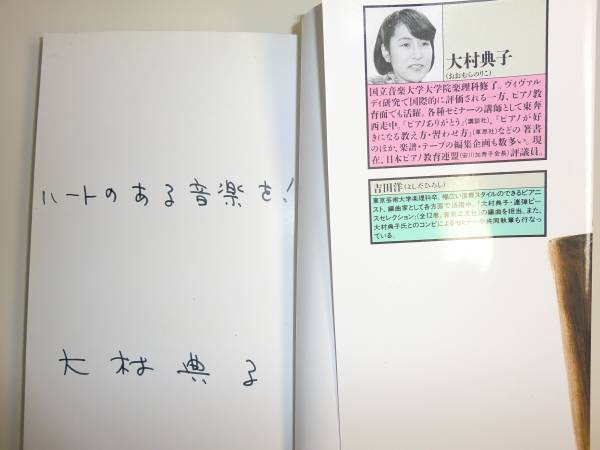 ハートのある音楽を！
大村典子
大村典子
(おおむらのりこ)
国立音楽大学大学院楽理科修了。ヴィヴァル
ディ研究で国際的に評価される一方、ピアノ教
育面でも活躍。各種セミナーの講師として東奔
西走中。「ピアノありがとう」(講談社)、「ピアノが好
きになる教え方・習わせ方」(草思社)などの著書
のほか、楽譜・テープの編集企画も数多い。現
在、日本ピアノ教育連盟(安川加寿子会長)評議員。
吉田洋(よしだひろし)
東京芸術大学楽理科卒。幅広い演奏スタイルのできるピアニ
スト、編曲家として各方面で活躍中。「大村典子・連弾ピー
スセレクション」(全12巻、音楽之友社)の編曲を担当。また、
大村典子氏とのコンビによるセミナーや共同執筆も行なっ
ている。